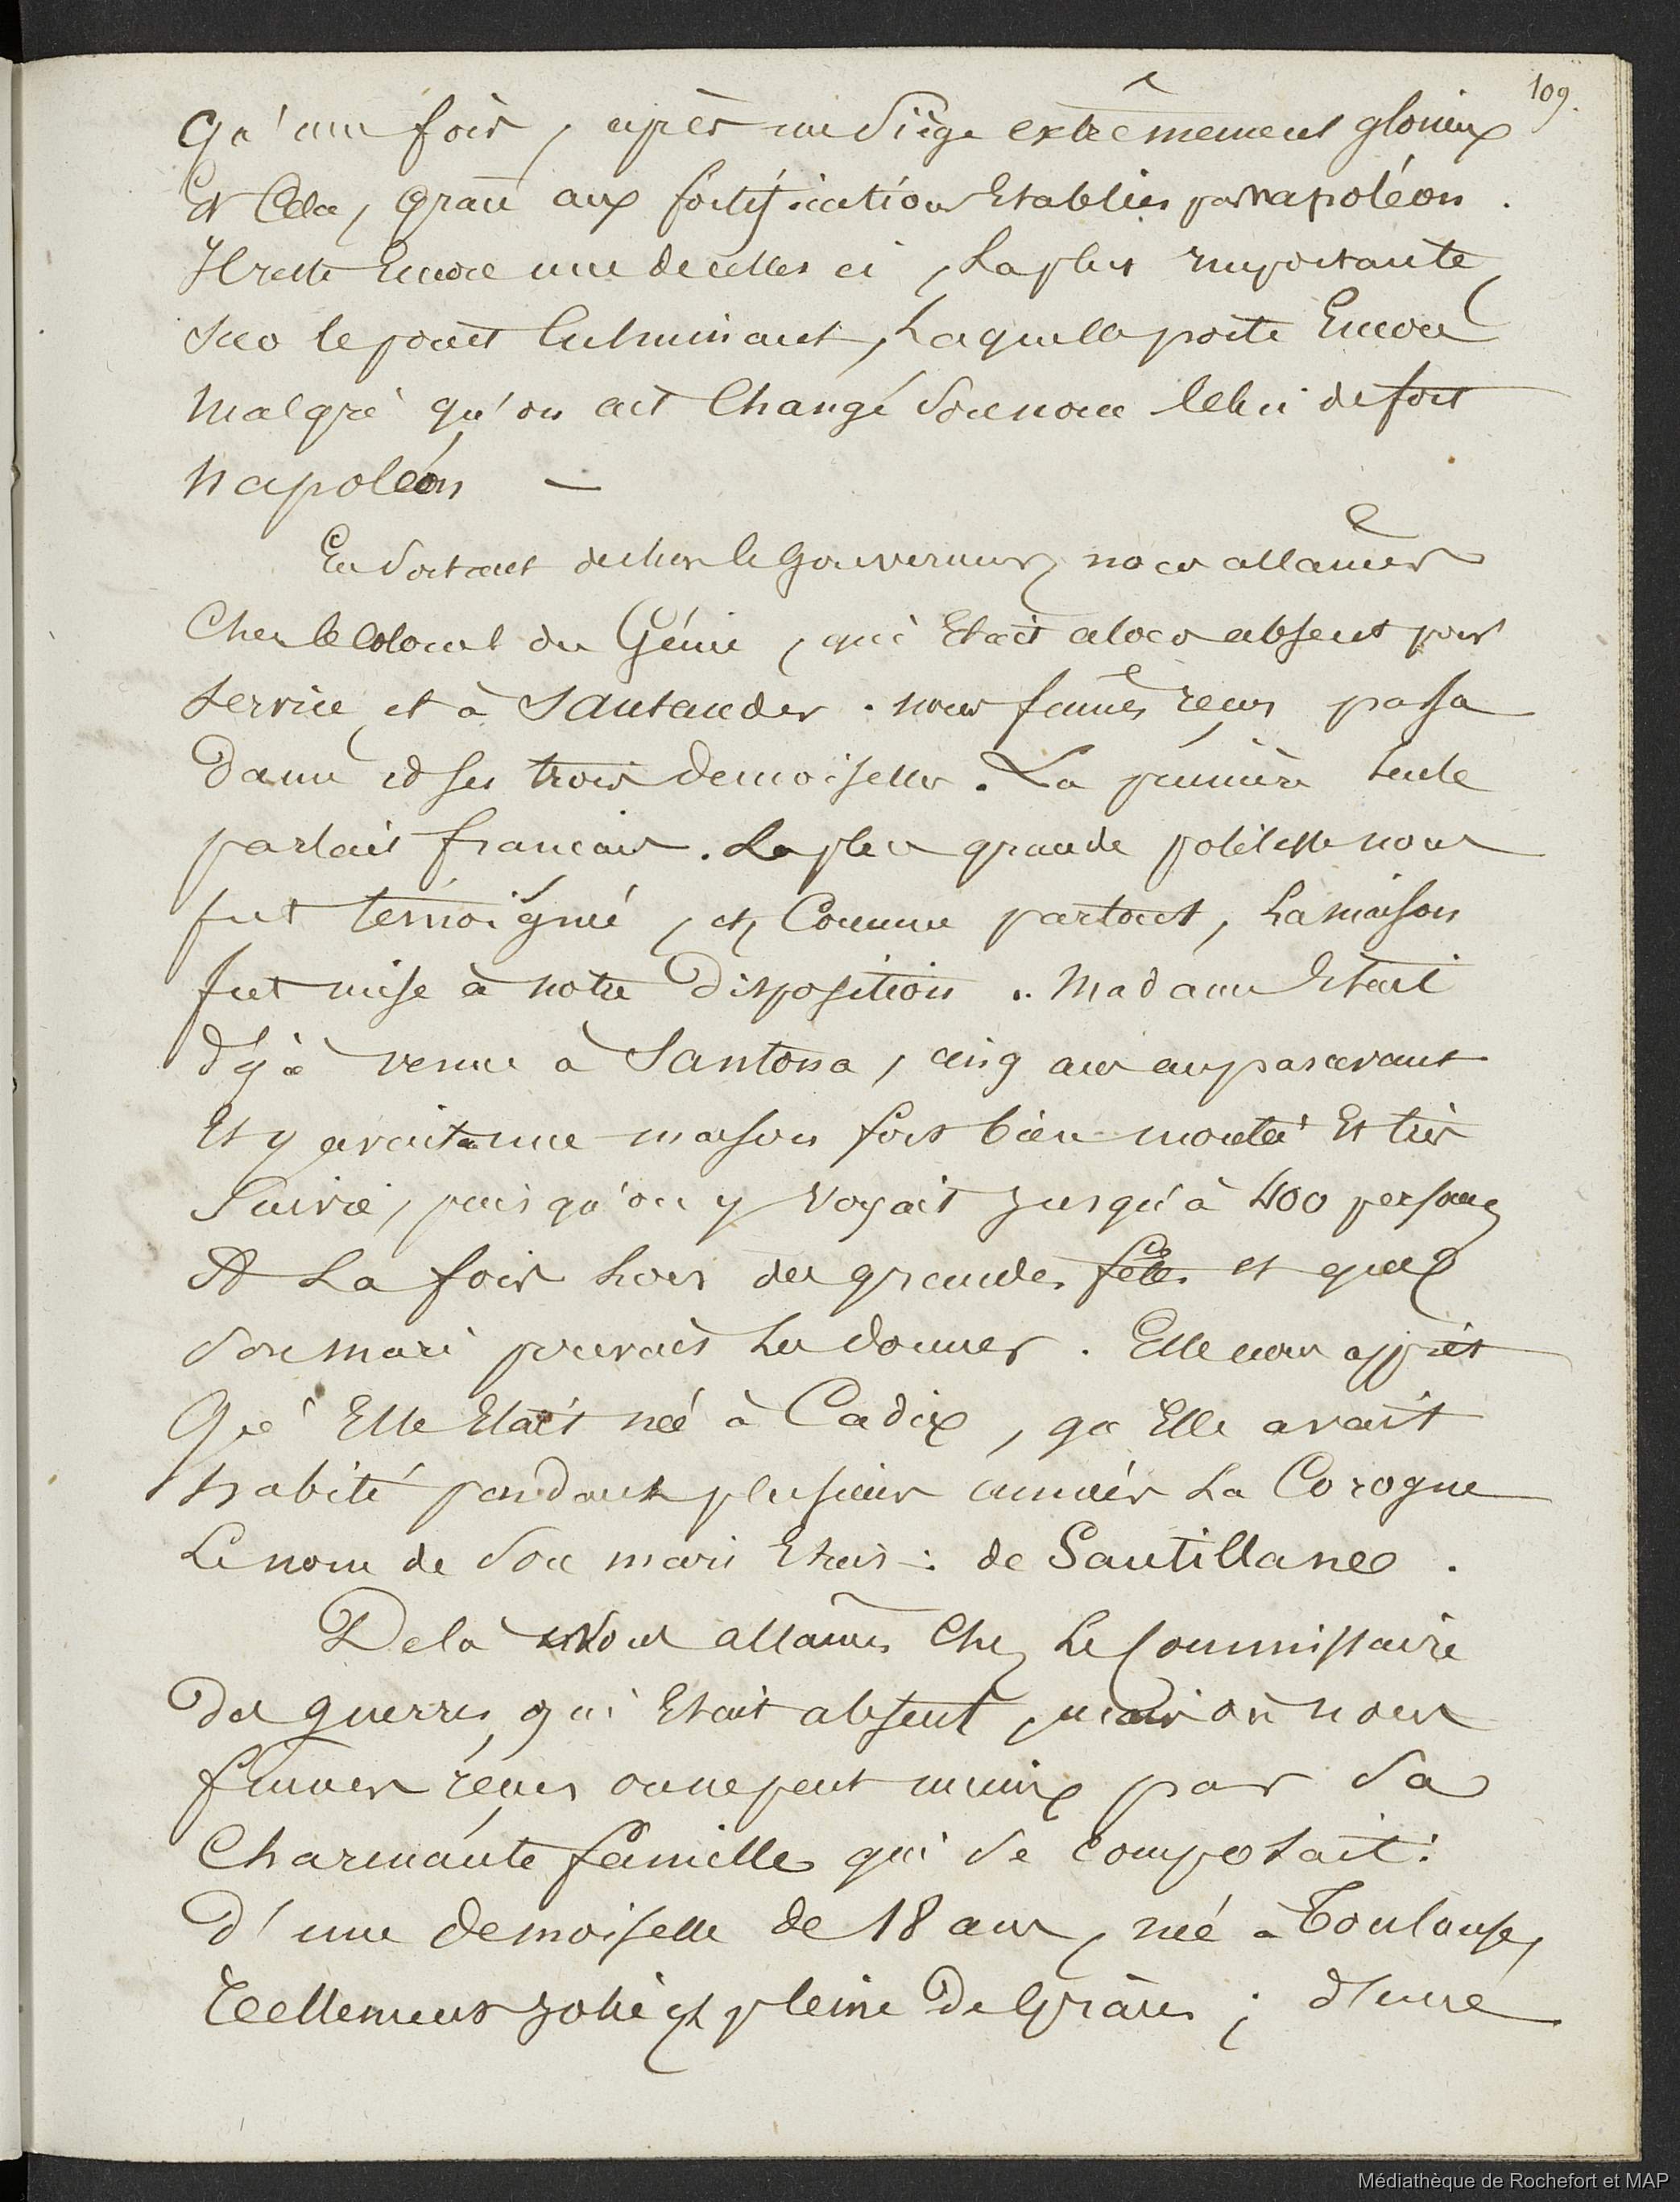 109.
qu'une fois, après un siège extrêmement glorieux
Et Cela, grâce aux fortifications Etablies par napoléon.
Il reste Encore une de celles ci, La plus importante,
sur le point Culminant, Laquelle porte Encore
Malgré qu'on ait Changé son nom Celui de fort
Napoléon —
En sortant de chez le Gouverneur, nous allâmes
Chez le Colonel du Génie, qui Etait alors absent pour
service et à Santander. nous fûmes reçus par sa
Dame et ses trois Demoiselles. La première seule
parlait français. La plus grande politesse nous
fut témoigné, et, Comme partout, La maison
fut mise à notre Disposition. Madame Etait
déjà venue à Santona, cinq ans auparavant
Et y avait une maison fort bien montée Et très
Suivie, puisqu'on y voyait jusqu'à 400 personnes
A La fois hors des grandes fêtes et que
son mari pouvait Les donner. Elle nous apprit
Que Elle Etait née à Cadix, qu'Elle avait
habité pendant plusieurs années La Corogne
Le nom de son mari Etait: de Santillane.
De là Nous allâmes Chez Le Commissaire
Des guerres, qui Etait absent, mais où nous
fûmes reçus on ne peut mieux par sa
Charmante famille qui se composait:
D'une Demoiselle de 18 ans, née à Toulouse,
Tellement jolie et pleine De Grâces; d'une
Médiathèque de Rochefort et MAP